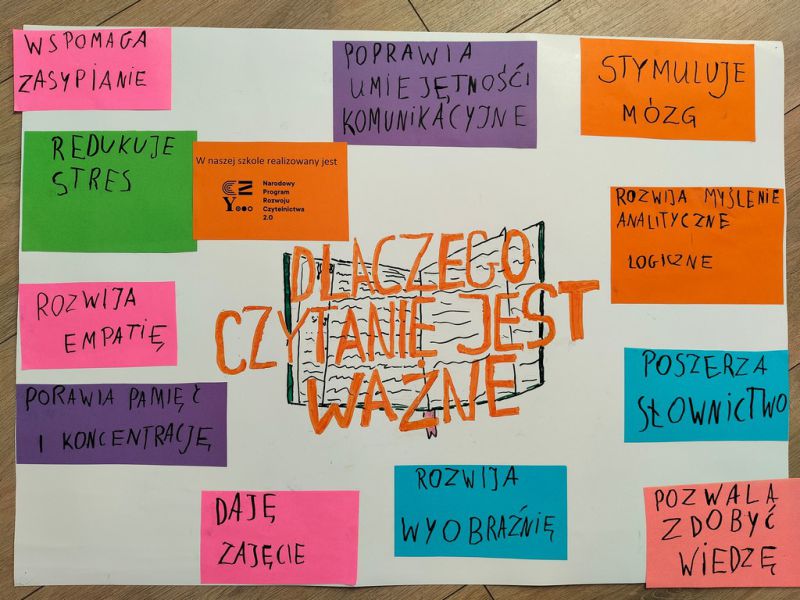 WSPOMAGA
ZASYPIANIE
POPRAWIA
UMIEJĘTNOŚĆI
KOMUNIKACYJNE
STYMULUJE
MÓZG
REDUKUJE
STRES
W naszej szkole realizowany jest
Narodowy
Program
Rozwoju
Czytelnictwa
2.0
ROZWIJA MYŚLENIE
ANALITYCZNE
LOGICZNE
DLACZEGO
CZYTANIE JEST
WAŻNE
ROZWIJA
EMPATIĘ
POSZERZA
SŁOWNICTWO
PORAWIA PAMIĘĆ
I KONCENTRACJĘ
DAJĘ
ZAJĘCIE
ROZWIJA
WYOBRAŹNIĘ
POZWALA
ZDOBYĆ
WIEDZĘ